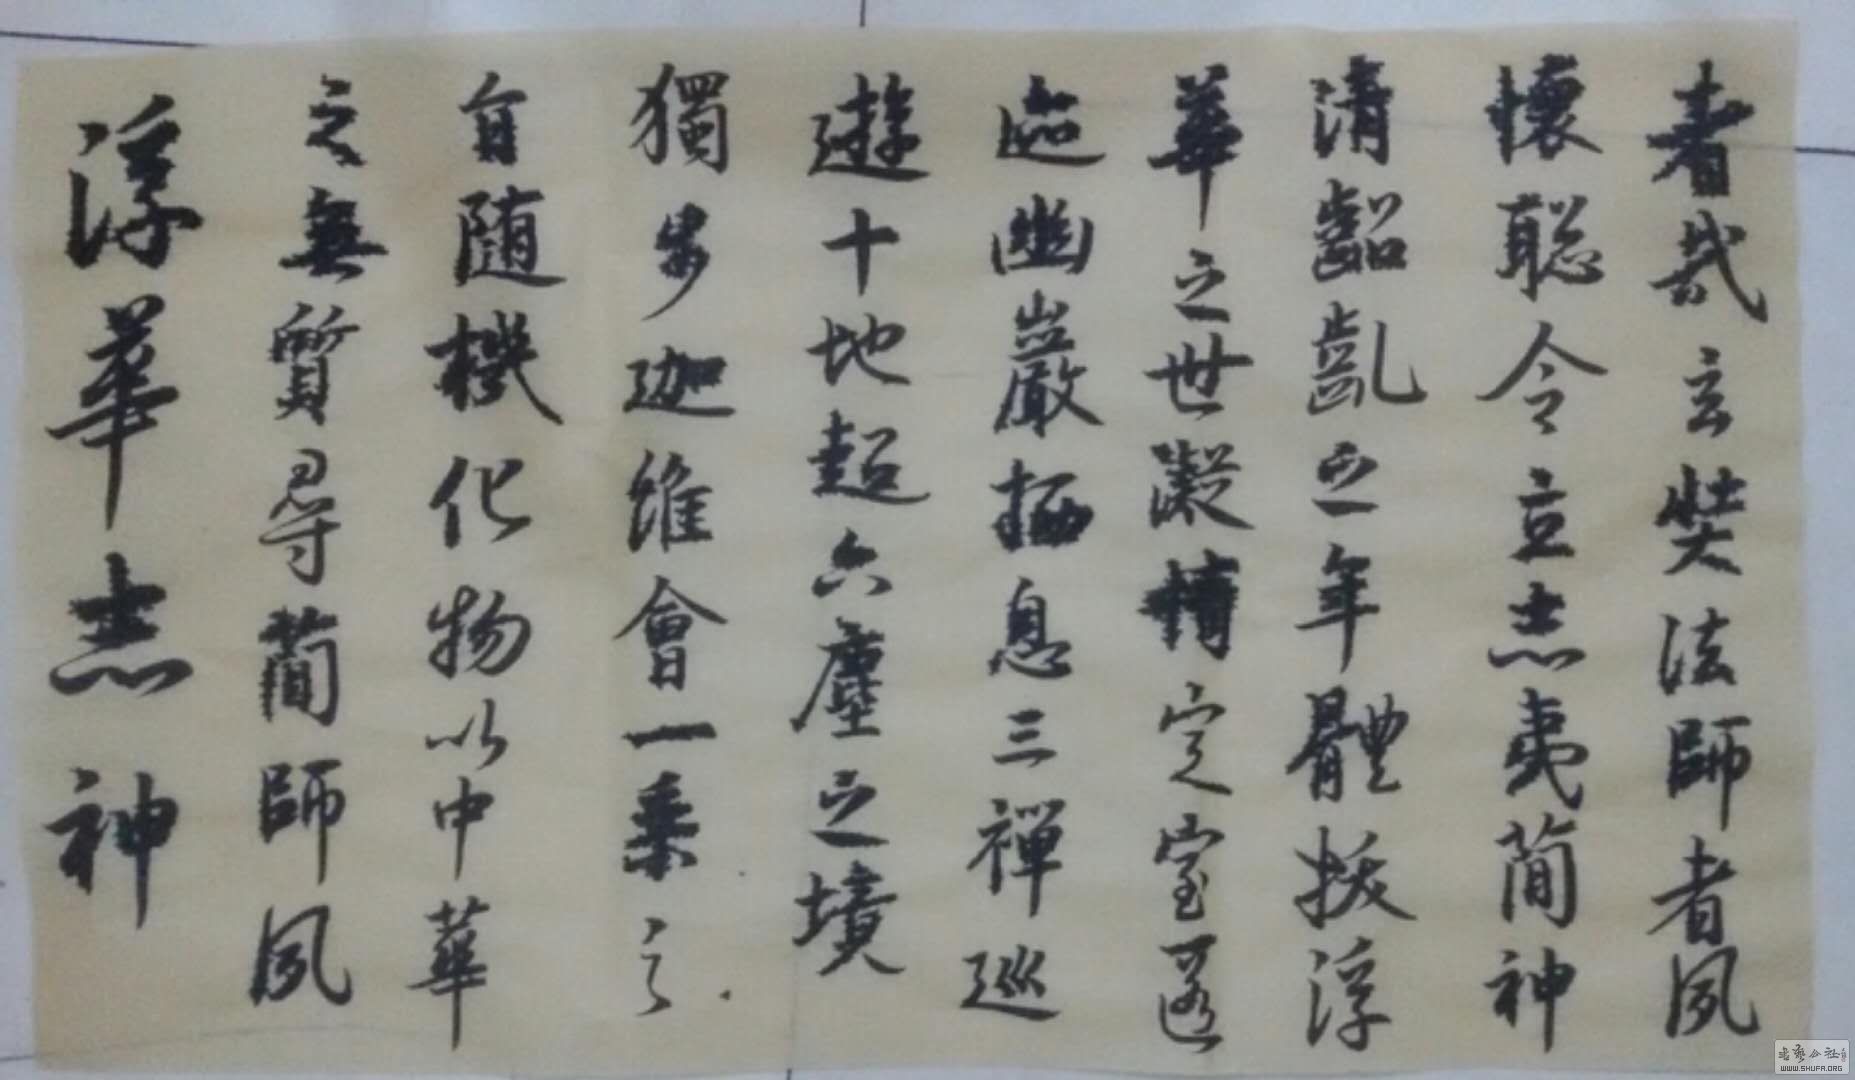 者哉玄奘法師者夙
懷聡令立志夷簡神
清齠齔之年體拔浮
華之世凝情定室匿
迹幽巖栖息三禪巡
遊十地超六塵之境
獨步迦維會一乘之
旨随機化物以中華
之無質尋蕳師夙
浮華志神
書藝公社
WWW.SHUFA.ORG